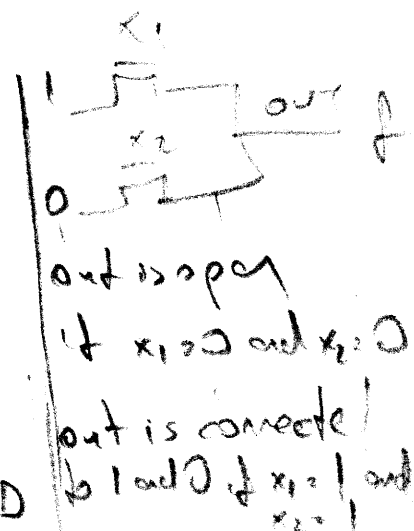 x1
1
out f
x2
0
out is open
if x1=0 and x2=0
out is connected
to 1 and 0 if x1=1 and
x2=1
D